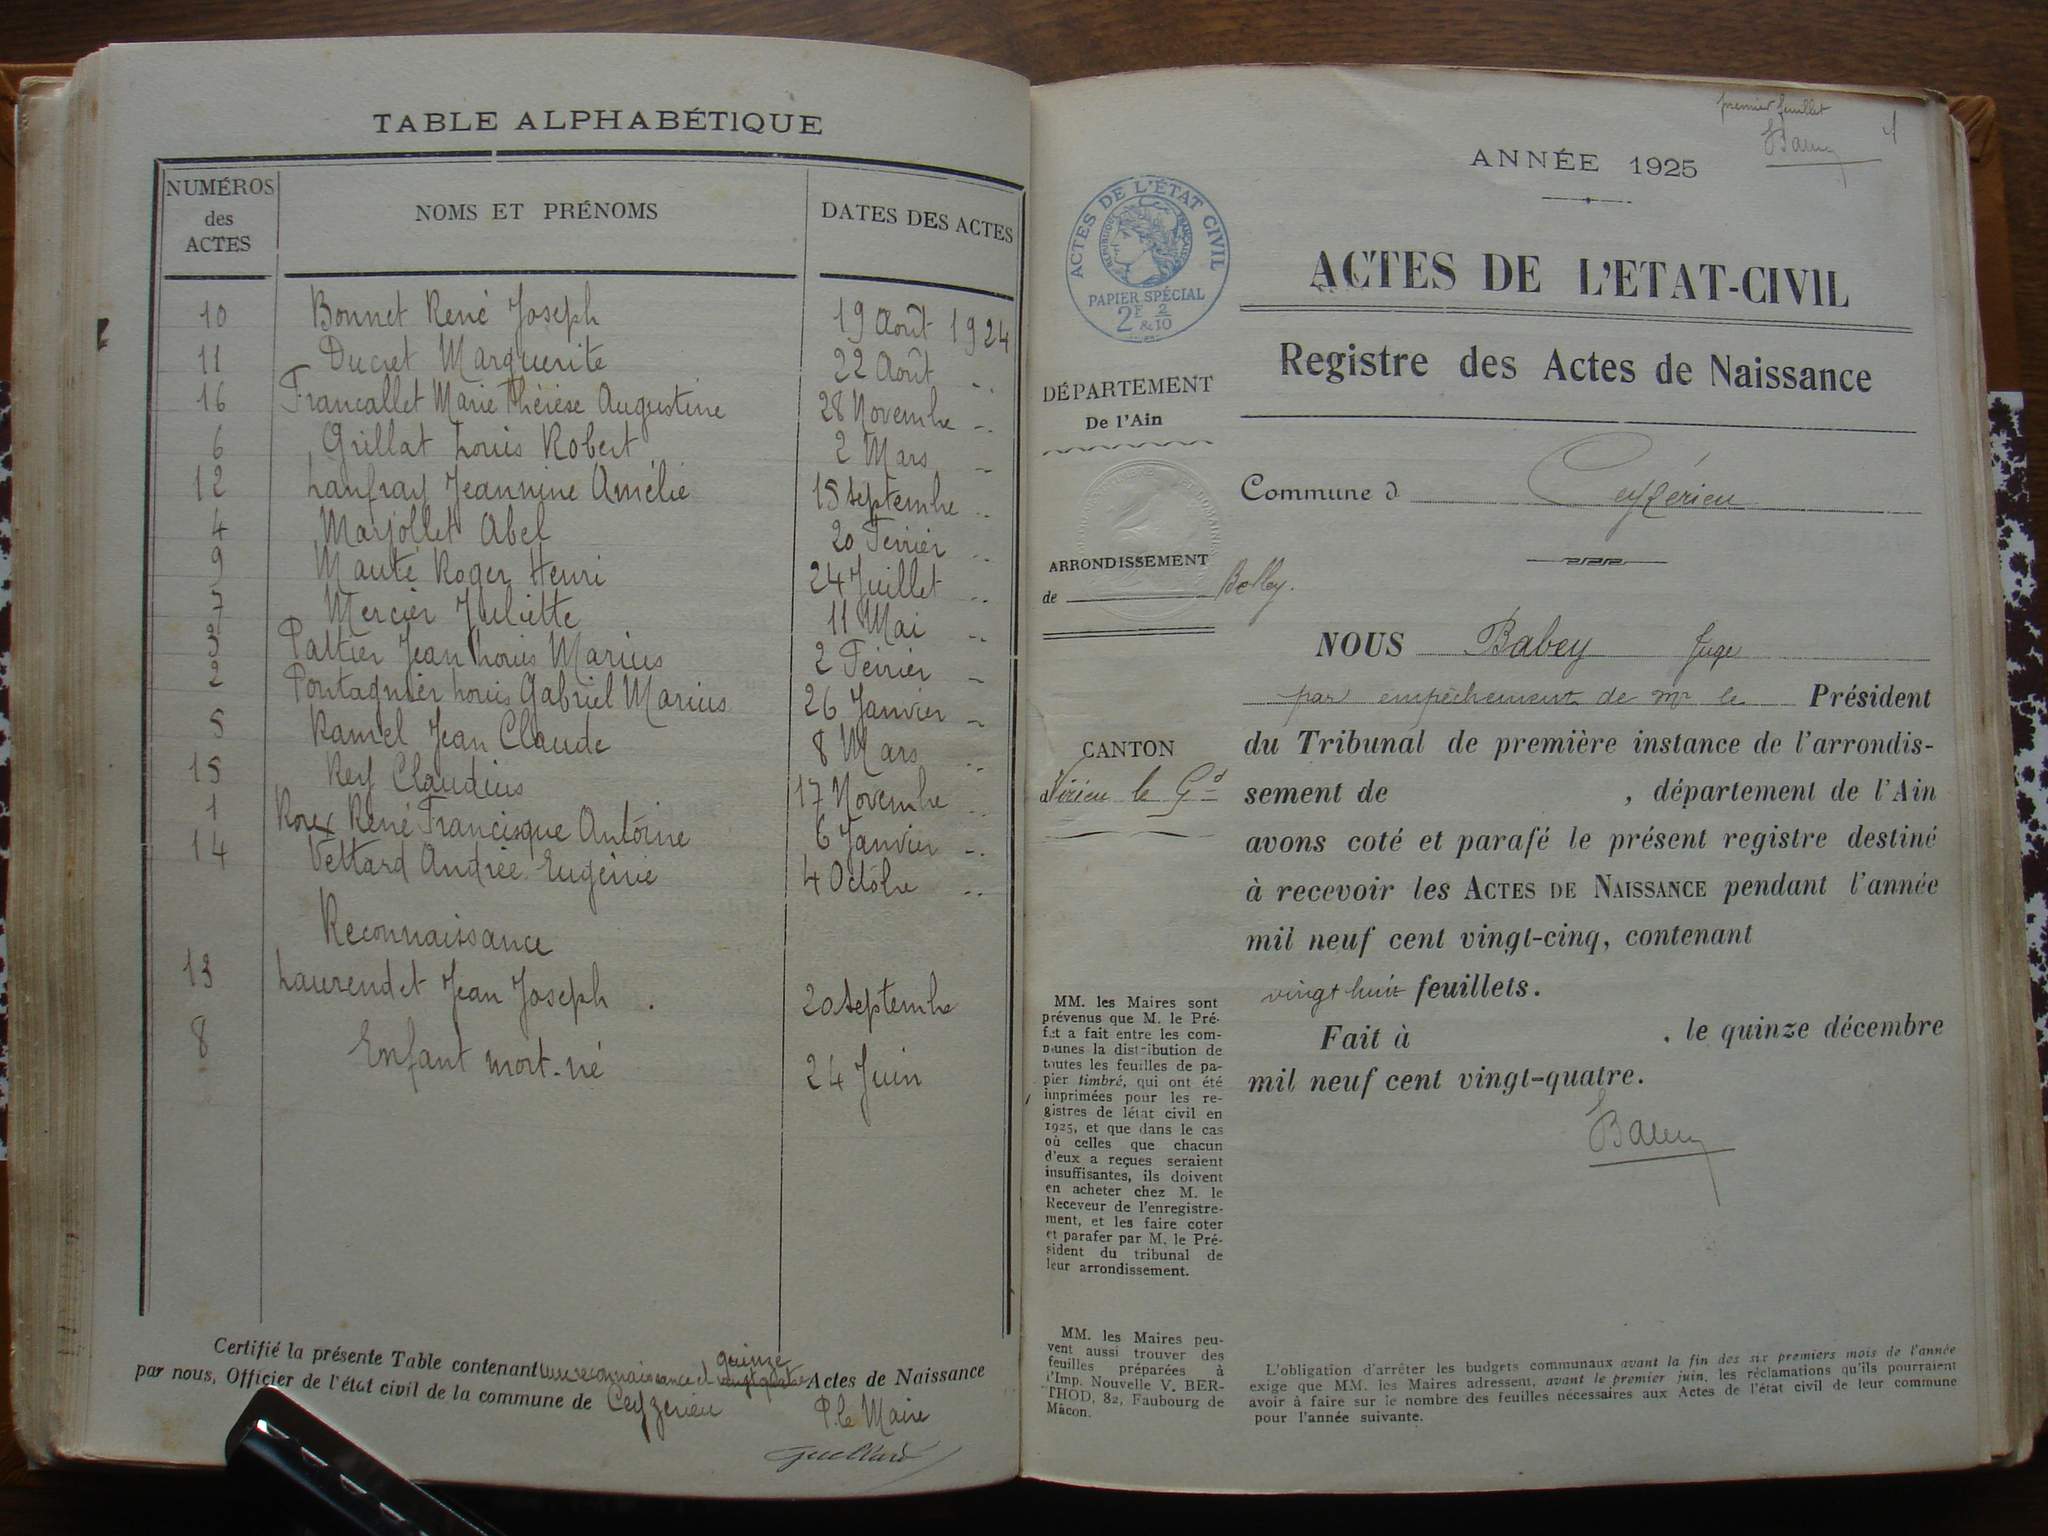 TABLE ALPHABÉTIQUE
NUMÉROS des ACTES NOMS ET PRÉNOMS DATES DES ACTES
10 Bonnet René Joseph 19 Août 1924
11 Ducret Marguerite 22 Août -.
16 Francallet Marie Thérèse Augustine 28 Novembre -.
6 Grillat Louis Robert 2 Mars -
12 Lanfray Jeannine Amélie 15 septembre -.
4 Marjollet Abel 20 Février -.
9 Manté Roger Henri 24 Juillet -.
7 Mercier Juliette 11 Mai -.
3 Paltier Jean Louis Marius 2 Février -
2 Pontagnier Louis Gabriel Marius 26 Janvier -
5 Ramel Jean Claude 8 Mars -.
15 Rey Claudius 17 Novembre -.
1 Roux René Francisque Antoine 6 Janvier -.
14 Vettard Andrée Eugénie 4 Octobre -.
Reconnaissance
13 Laurendet Jean Joseph . 20 septembre
8 Enfant mort-né 24 Juin
Certifié la présente Table contenant une reconnaissance et quinze Actes de Naissance
par nous, Officier de l'état civil de la commune de Ceyzérieu
P. le Maire
premier feuillet
1
ANNÉE 1925
ACTES DE L'ÉTAT CIVIL
RÉPUBLIQUE FRANÇAISE
PAPIER SPÉCIAL
2F & 2/10
ACTES DE L'ETAT-CIVIL
Registre des Actes de Naissance
DÉPARTEMENT
De l'Ain
Commune d Ceyzérieu
ARRONDISSEMENT
de Belley.
CANTON
Virieu le Gd
NOUS Babey Juge
par empêchement de Mr le Président
du Tribunal de première instance de l'arrondis-
sement de , département de l'Ain
avons coté et parafé le présent registre destiné
à recevoir les ACTES DE NAISSANCE pendant l'année
mil neuf cent vingt-cinq, contenant
vingt huit feuillets.
Fait à , le quinze décembre
mil neuf cent vingt-quatre.
MM. les Maires sont
prévenus que M. le Pré-
fet a fait entre les com-
munes la distribution de
toutes les feuilles de pa-
pier timbré, qui ont été
imprimées pour les re-
gistres de létat civil en
1925, et que dans le cas
où celles que chacun
d'eux a reçues seraient
insuffisantes, ils doivent
en acheter chez M. le
Receveur de l'enregistre-
ment, et les faire coter
et parafer par M. le Pré-
sident du tribunal de
leur arrondissement.
MM. les Maires peu-
vent aussi trouver des
feuilles préparées à
l'Imp. Nouvelle V. BER-
THOD, 82, Faubourg de
Mâcon.
L'obligation d'arrêter les budgets communaux avant la fin des six premiers mois de l'année
exige que MM. les Maires adressent, avant le premier juin, les réclamations qu'ils pourraient
avoir à faire sur le nombre des feuilles nécessaires aux Actes de l'état civil de leur commune
pour l'année suivante.